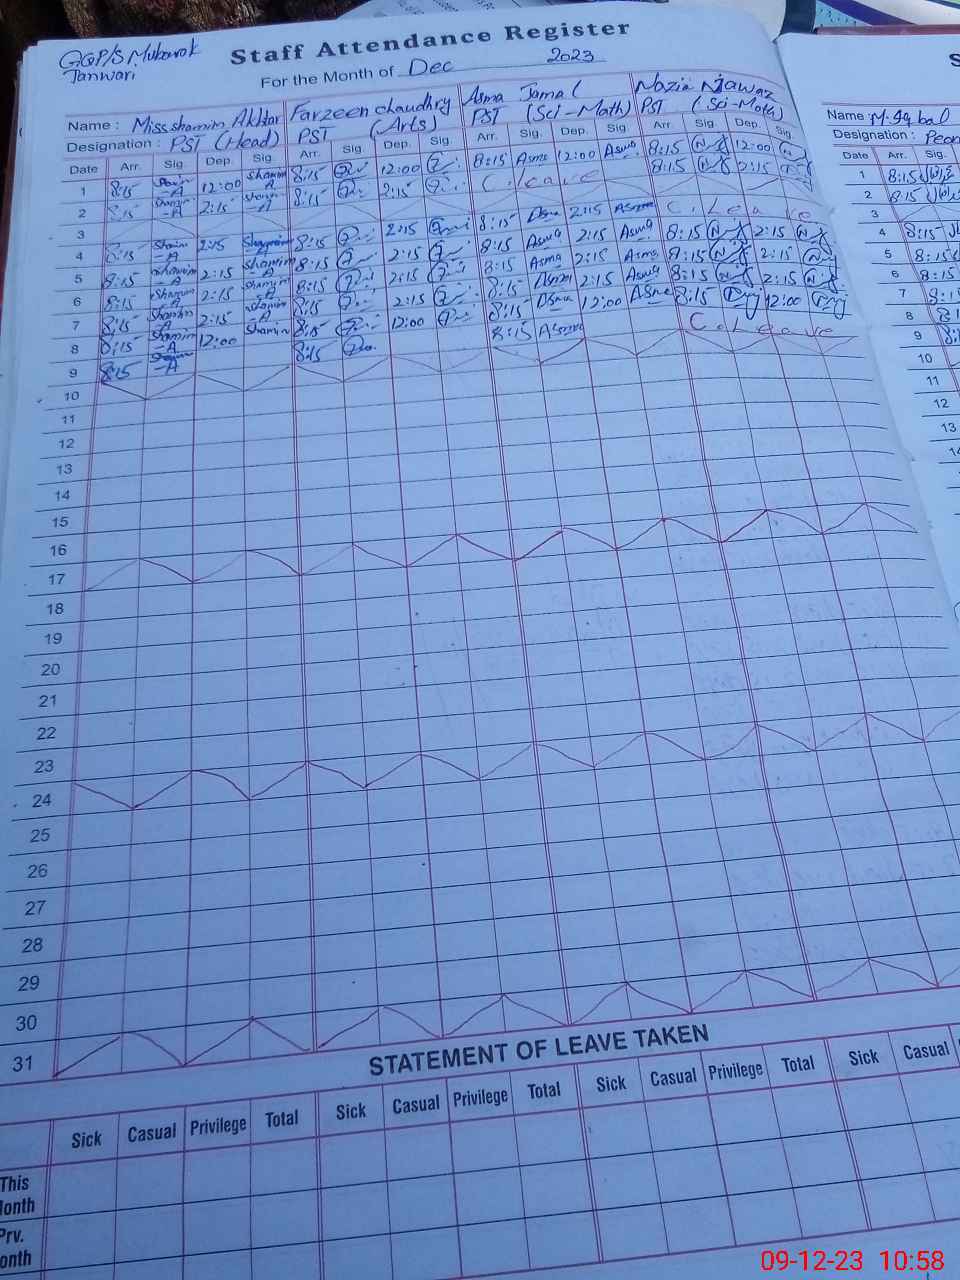 GGP/S Mubarak
Janwari
Staff Attendance Register
For the Month of Dec 2023
Name : Miss shamim Akhtar Farzeen chaudhry Asma Jamal Nazia Nawaz
Designation : PST (Head) PST (Arts) PST (Sci-Math) PST (Sci-Math)
Date Arr. Sig. Dep. Sig. Arr. Sig. Dep. Sig. Arr. Sig. Dep. Sig. Arr. Sig. Dep. Sig.
1 8:15 12:00 Shamim A 8:15 12:00 8:15 Asma 12:00 Asma 8:15 12:00
2 8:15 Shamim -A 2:15 Shamim -A 8:15 2:15 C. leave 8:15 2:15
3
4 8:15 Sham -A 2:15 Shamim -A 8:15 2:15 8:15 Asma 2:15 Asma C. Leave
5 8:15 Shamim -A 2:15 Shamim A 8:15 2:15 8:15 Asma 2:15 Asma 8:15 2:15
6 8:15 Shamim -A 2:15 Shamim A 8:15 2:15 8:15 Asma 2:15 Asma 8:15 2:15
7 8:15 Shamim -A 2:15 Shamim A 8:15 2:15 8:15 Asma 2:15 Asma 8:15 2:15
8 8:15 Shamim A 12:00 Shamim 8:15 12:00 8:15 Asma 12:00 Asma 8:15 12:00
9 8:15 -A 8:15 8:15 Asma C. Leave
10
11
12
13
14
15
16
17
18
19
20
21
22
23
24
25
26
27
28
29
30
31
STATEMENT OF LEAVE TAKEN
Sick Casual Privilege Total Sick Casual Privilege Total Sick Casual Privilege Total Sick Casual
This
Month
Prv.
Month
S
Name M. Iqbal
Designation : Peon
Date Arr. Sig.
1 8:15
2 8:15
3
4 8:15
5 8:15
6 8:15
7
8
9
10
11
12
13
14
09-12-23 10:58